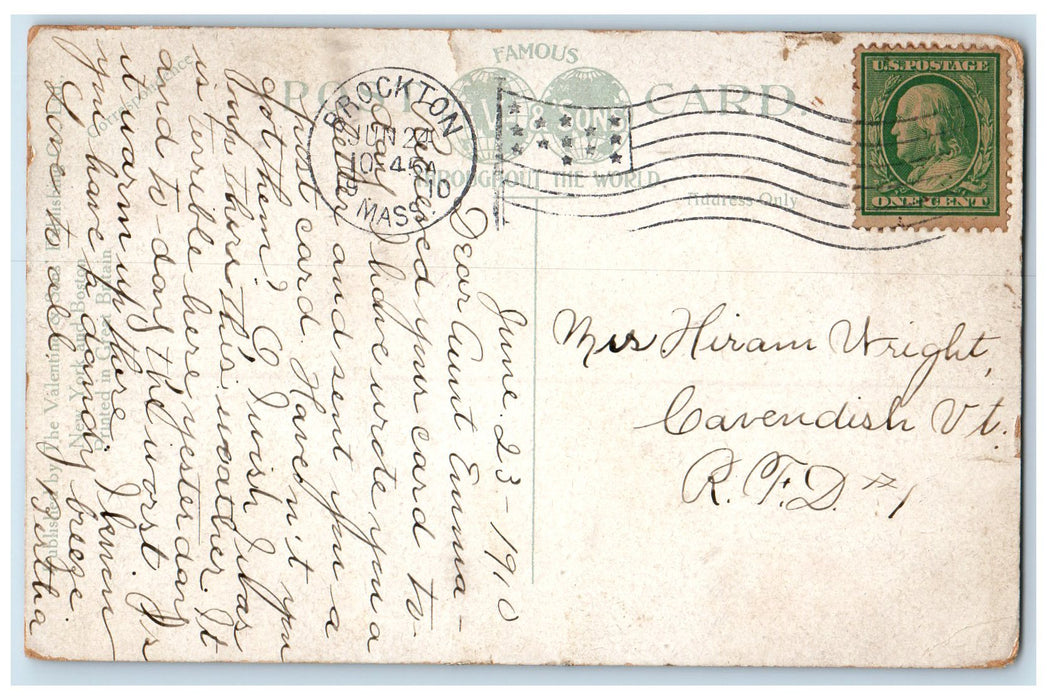 FAMOUS
POST CARD.
V & SONS
THROUGHOUT THE WORLD
Correspondence
Address Only
BROCKTON
JUN 24
10 45A
1910
MASS.
U.S. POSTAGE
ONE CENT
June. 23 - 1910
Dear Aunt Emma -
Received your card to-
day. I have wrote you a
letter and sent you a
post card. Haven't you
got them? I wish I was
up there this weather. It
is terrible here yesterday
and to-day the worst. Is
it warm up there. I know
you have a dandy breeze
Love to all. Bertha
Mrs Hiram Wright,
Cavendish Vt.
R.F.D #1
Published by The Valentine & Sons Publishing Co.
New York and Boston
Printed in Great Britain